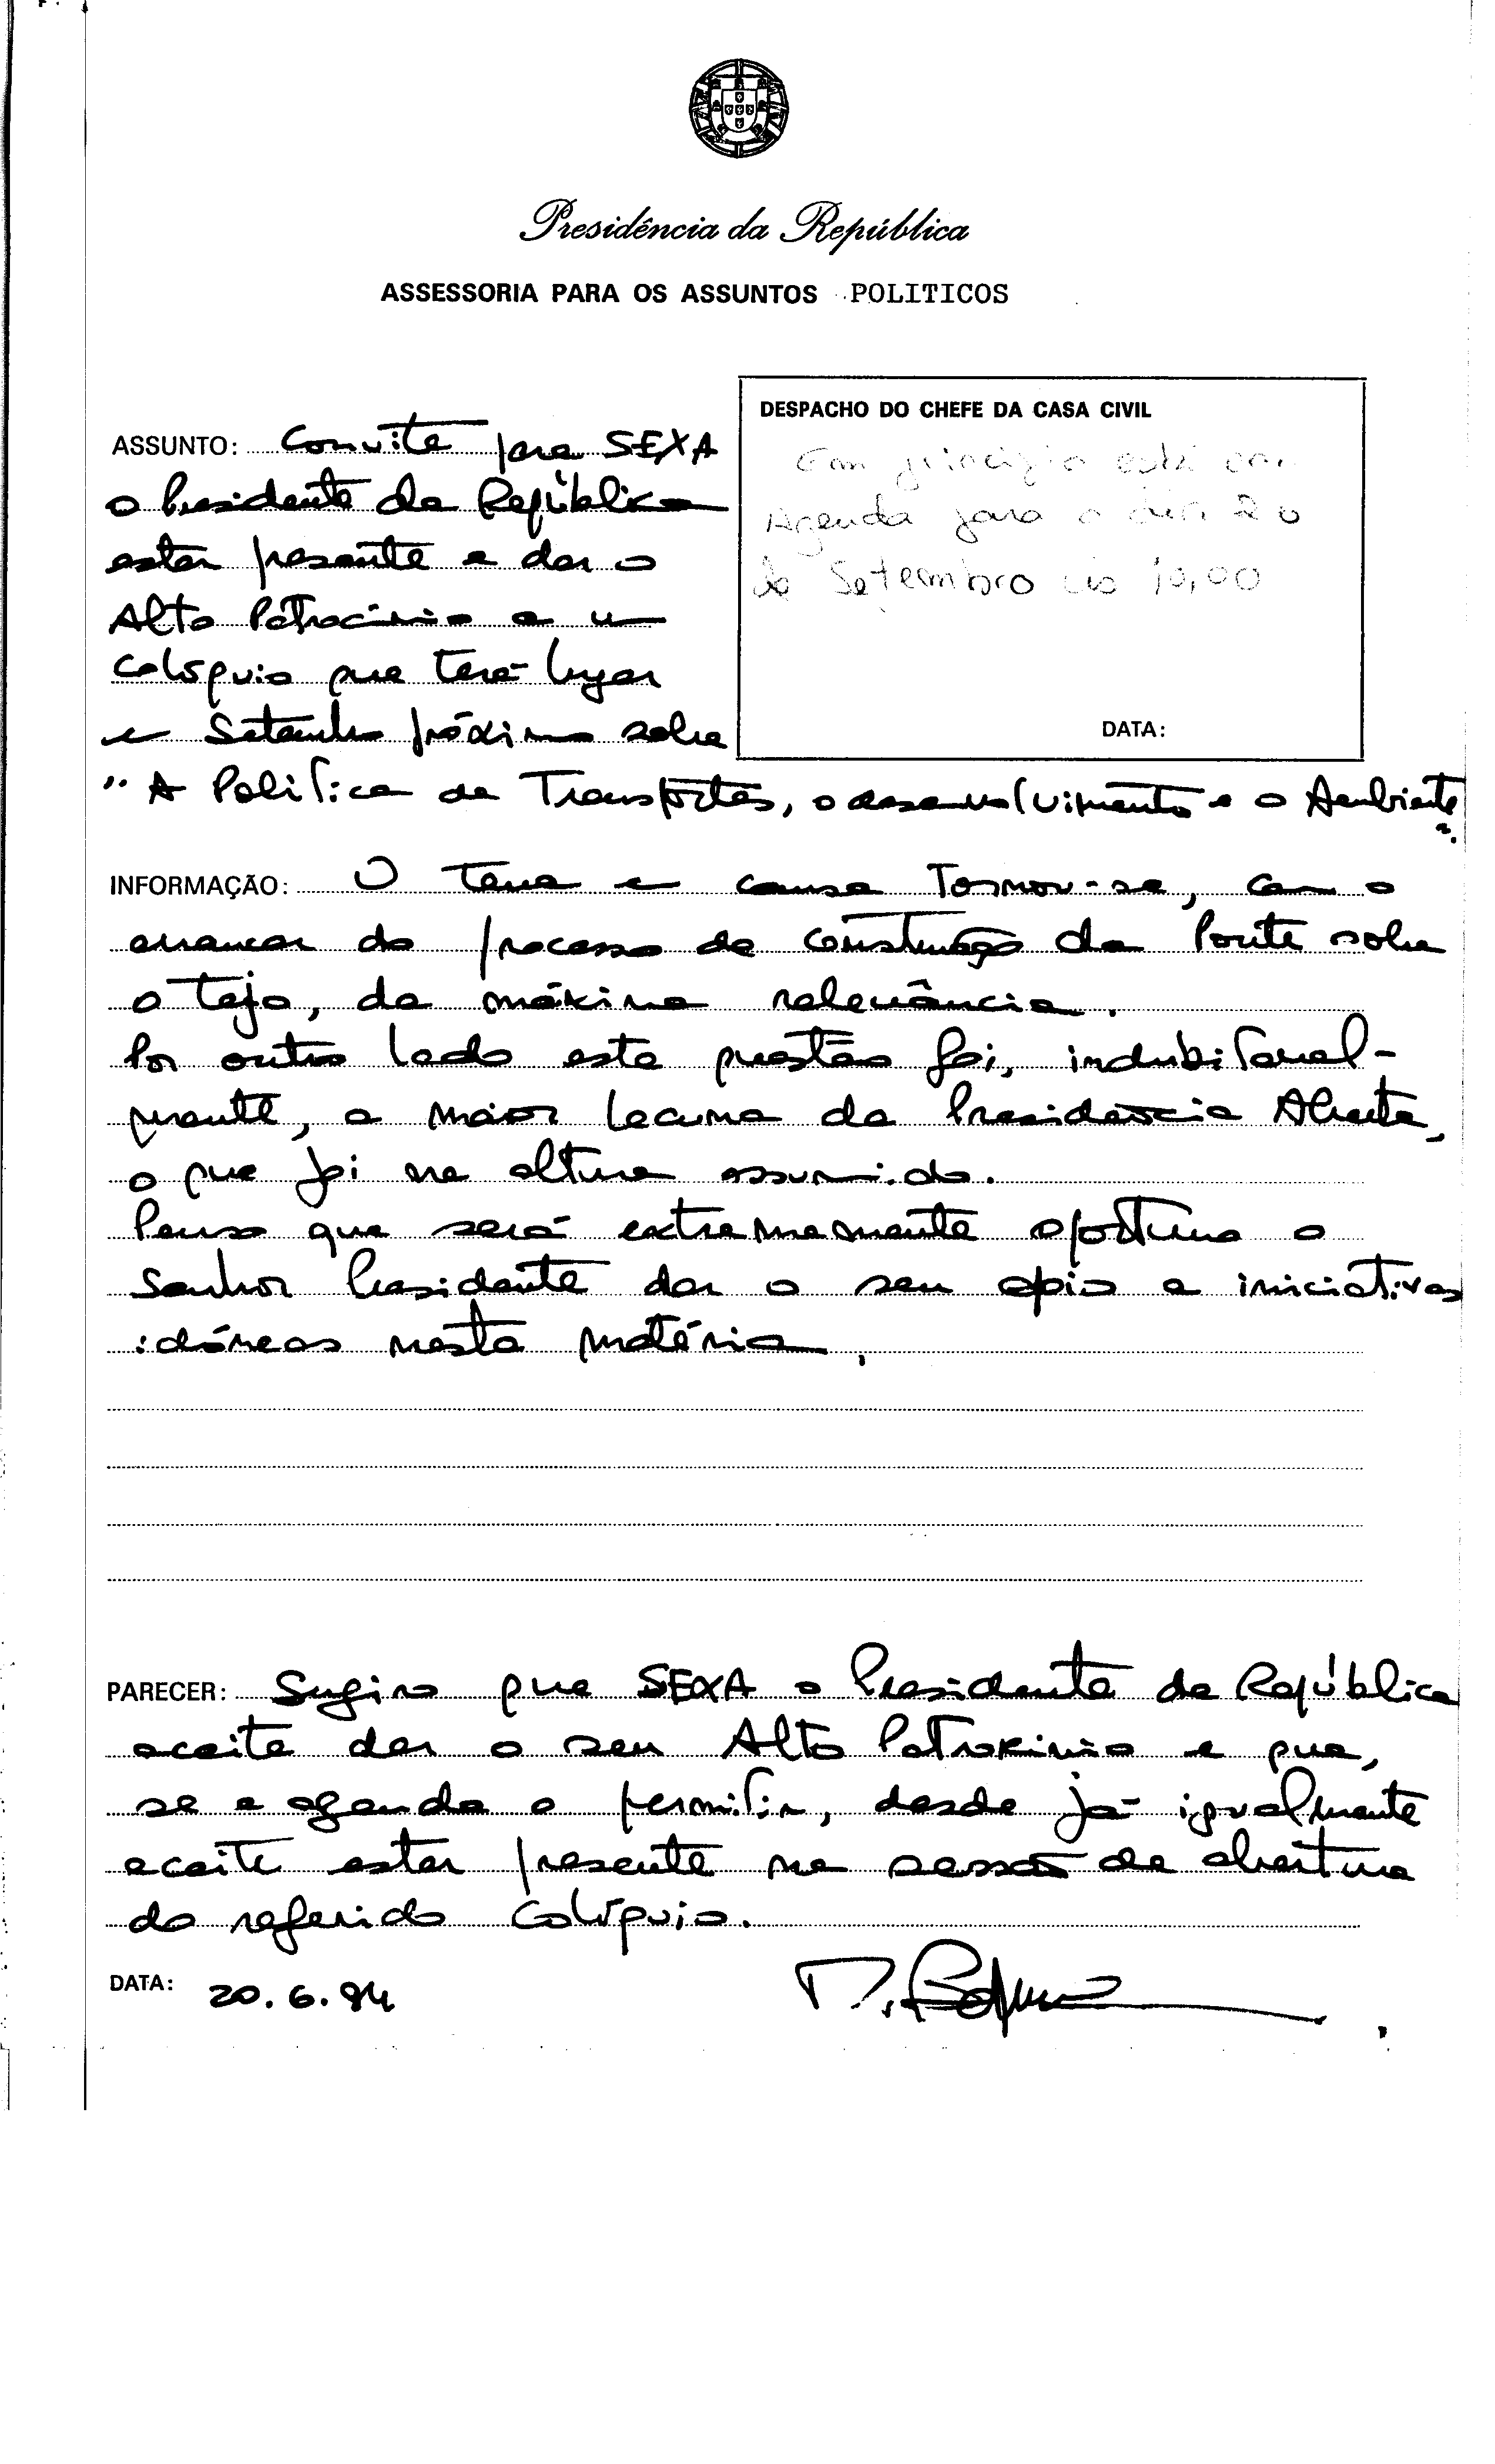 Presidência da República
ASSESSORIA PARA OS ASSUNTOS POLITICOS
DESPACHO DO CHEFE DA CASA CIVIL
Em princípio está em
Agenda para o dia 20
de Setembro às 10,00
DATA:
ASSUNTO: Convite para SEXA
o Presidente da República
estar presente e dar o
Alto Patrocínio a um
colóquio que terá lugar
em Setembro próximo sobre
"A Política de Transportes, o desenvolvimento e o Ambiente
".
INFORMAÇÃO: O tema em causa tornou-se, com o
arrancar do processo de construção da Ponte sobre
o Tejo, da máxima relevância.
Por outro lado esta questão foi, indubitavel-
mente, a maior lacuna da Presidência Aberta,
o que foi na altura assumido.
Penso que será extremamente oportuno o
Senhor Presidente dar o seu apoio a iniciativas
idóneas nesta matéria.
PARECER: Sugiro que SEXA o Presidente da República
aceite dar o seu Alto Patrocínio e que,
se a agenda o permitir, desde já igualmente
aceite estar presente na sessão de abertura
do referido Colóquio.
DATA: 20.6.94